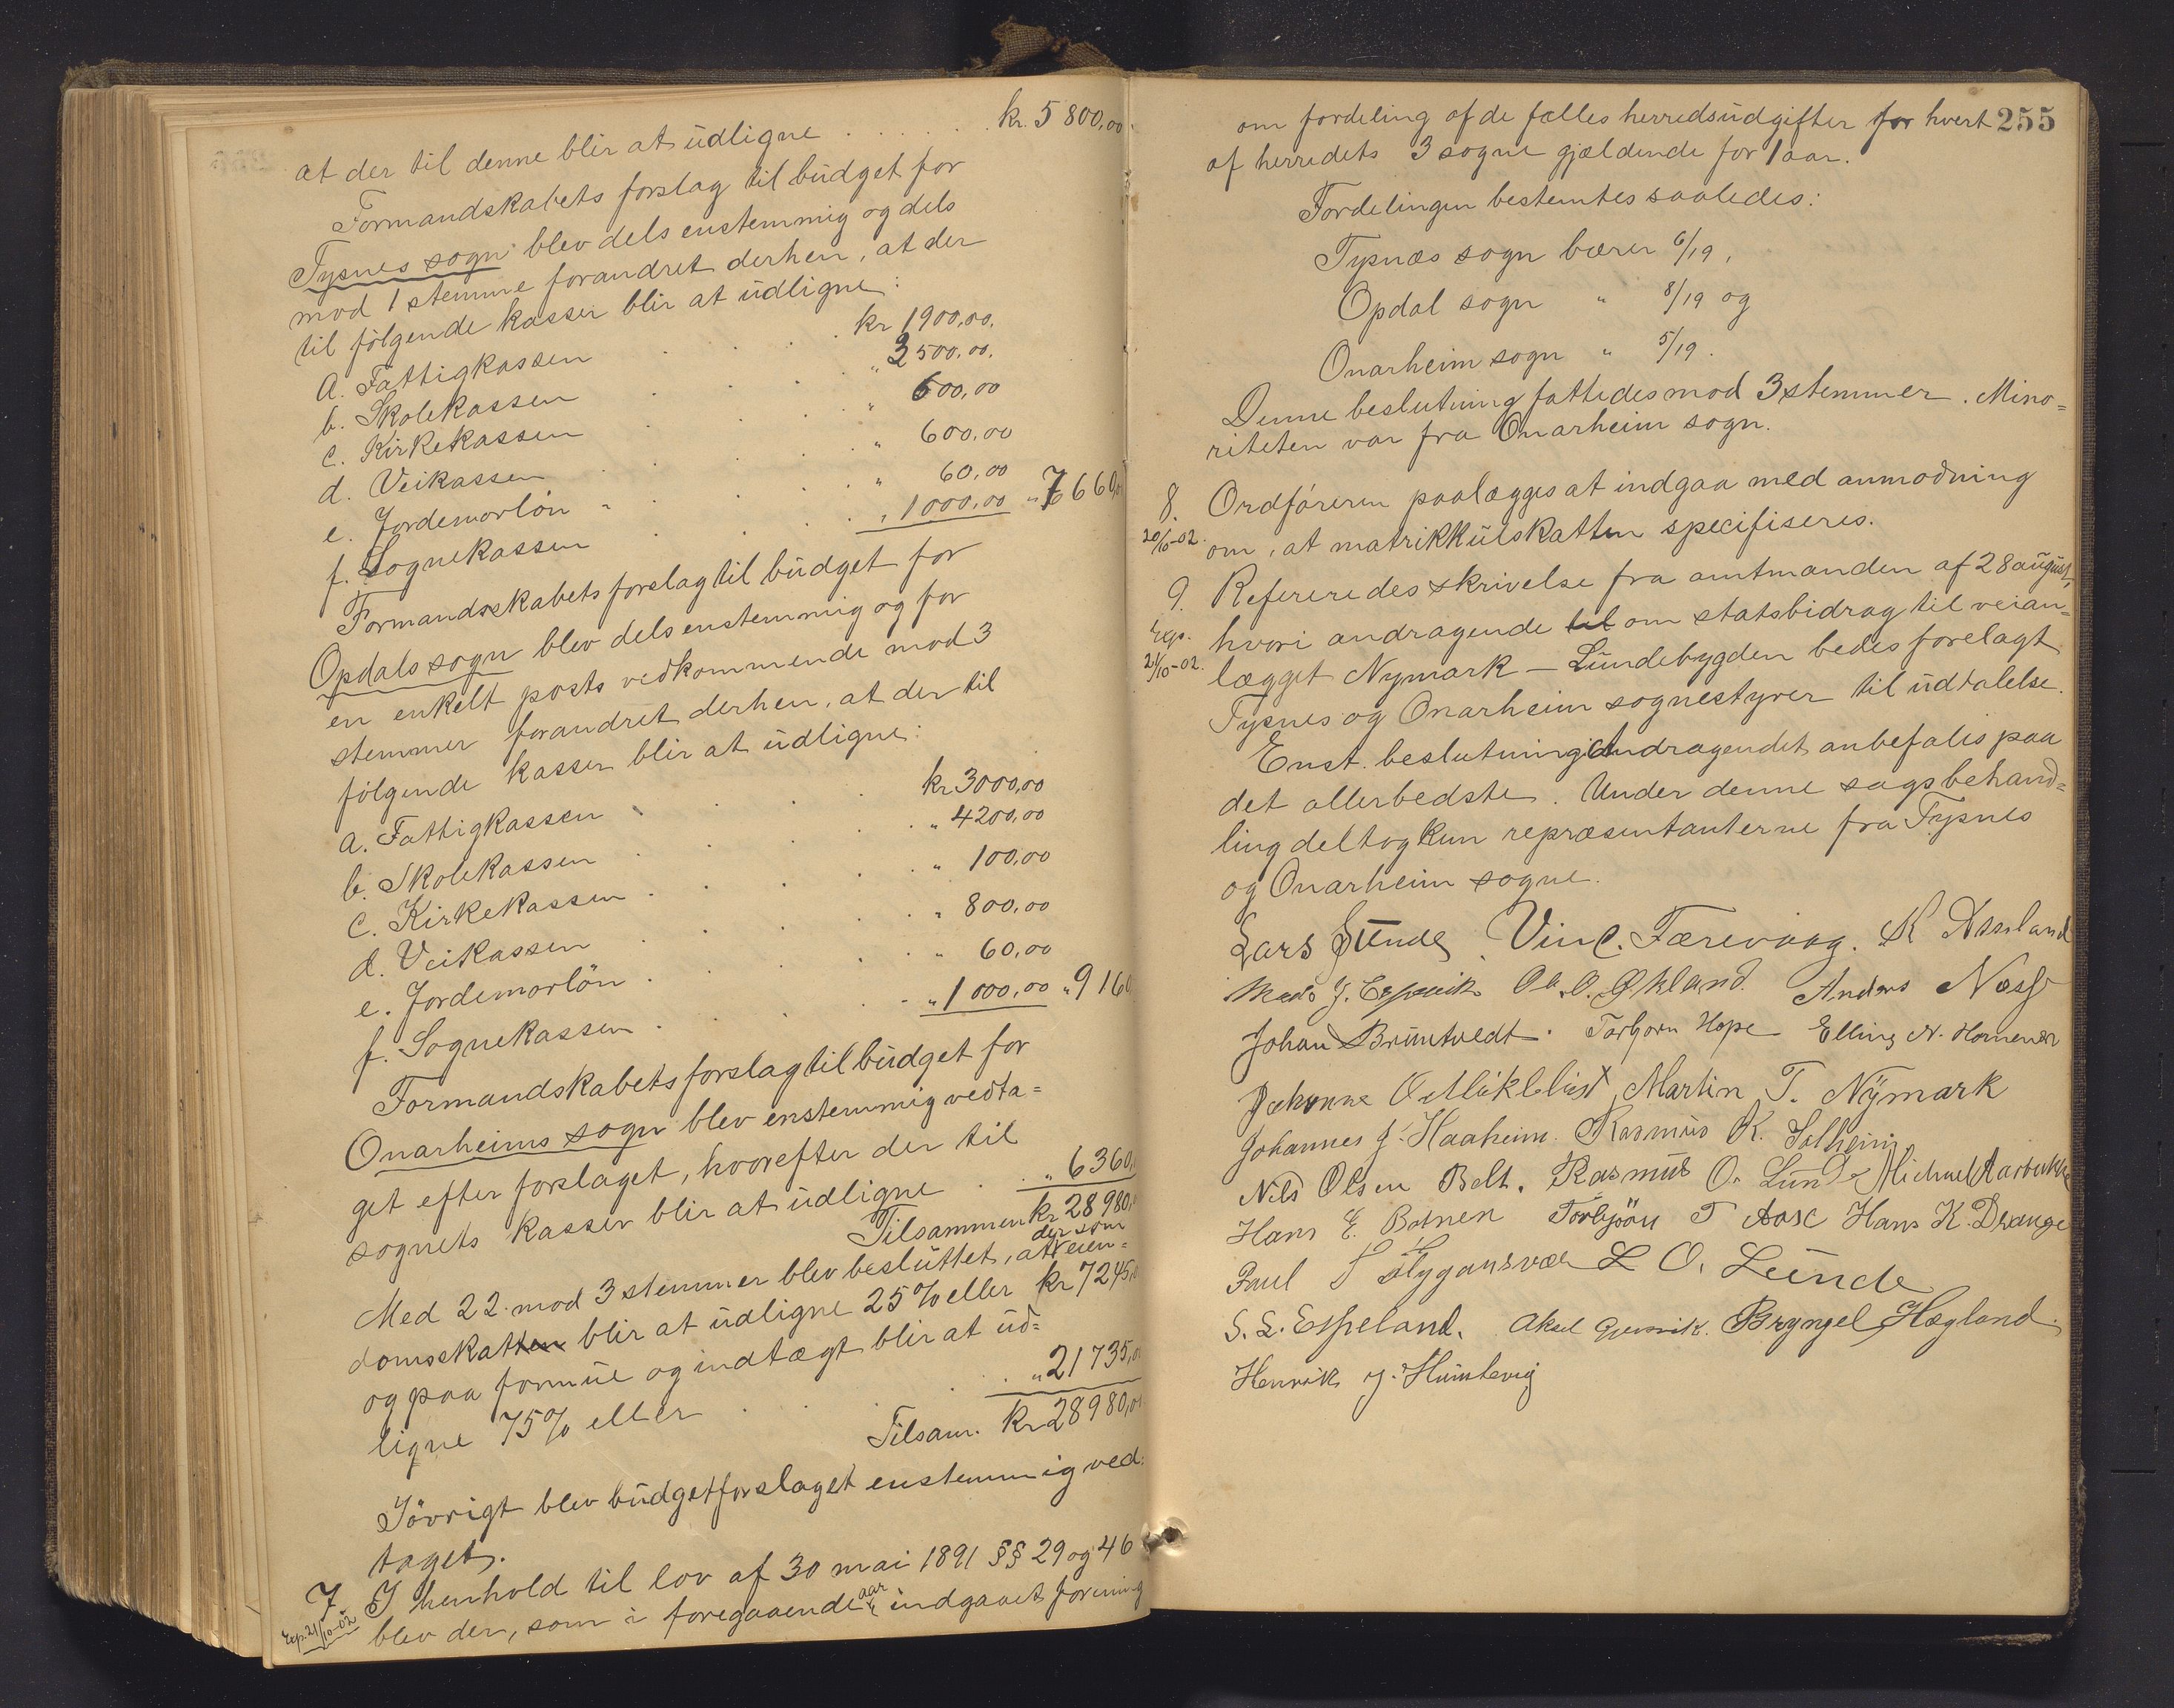 at der til denne blir at údligne . . . . . . kr. 5800,00.
Formandskabets forslag til búdget for
Tysnes sogn blev dels enstemmig og dels
mod 1 stemme forandret derhen, at der
til fölgende kasser blir at údligne:
a. Fattigkassen . . . . kr 1900,00.
b. Skolekassen . . . . " 3500,00.
c. Kirkekassen . . . . " 600,00
d. Veikassen . . . . " 600,00
e. Jordemorlön . . . . " 60,00
f. Sognekassen . . . . " 1000,00 " 7660,0
Formandsskabets forslag til búdget for
Opdals sogn blev dels enstemmig og for
en enkelt posts vedkommende mod 3
stemmer forandret derhen, at der til
fölgende kasser blir at údligne:
a. Fattigkassen . . . . kr 3000,00
b. Skolekassen . . . . " 4200,00
c. Kirkekassen . . . . " 100,00
d. Veikassen . . . . " 800,00
e. Jordemorlön . . . . " 60,00
f. Sognekassen . . . . " 1000,00 " 9160,
Formandskabets forslag til búdget for
Onarheims sogn blev enstemmig vedta=
get efter forslaget, hvorefter der til
sognets kasser blir at údligne . . " 6360,
Tilsammen kr 28980,
Med 22 mod 3 stemmer blev beslúttet, at der som eien=
domsskatten blir at údligne 25% eller kr 7245,0
og paa formúe og indtægt blir at úd=
ligne 75% eller . . . . " 21735,0
Tilsam. kr 28980,0
Iövrigt blev búdgetforslaget enstemmig ved=
taget.
7. I henhold til lov af 30 mai 1891 §§ 29 og 46
Exp. 21/10-02 blev den, som i foregaaende aar indgaaet forening
255
om fordeling af de fælles herredsúdgifter for hvert
af herredets 3 sogne gjældende for 1 aar.
Fordelingen bestemtes saaledes:
Tysnæs sogn bærer 6/19,
Opdal sogn " 8/19 og
Onarheim sogn " 5/19.
Denne beslutning fattedes mod 3 stemmer. Mino=
riteten var fra Onarheim sogn.
8. Ordföreren paalægges at indgaa med anmodning
20/10-02. om, at matrikkúlskatten specifiseres.
9. Refereredes skrivelse fra amtmanden af 28 aúgúst,
Exp. hvori andragende til om statsbidrag til veian=
21/10-02. lægget Nymark – Lúndebygden bedes forelagt
Tysnes og Onarheim sognestyrer til údtalelse.
Enst. beslutning: Andragendet anbefales paa
det allerbedste. Under denne sags behand=
ling deltog kun repræsentanterne fra Tysnes
og Onarheim sogne.
Lars Lúnde. Vinc. Færevaag. K Assland
Mads J. Espevik Ol. O. Økland. Anders Næss
Johan Brúntvedt. Torbjørn Hope Elling N.
O Miklebúst Martin T. Nÿmark
Johannes J. Haaheim. Rasmús K. Solheim
Nils Olsen Belt. Rasmús O. Lúnde Michael Aarbakke
Hans E. Botnen Torbjörn T Aase Hans K. Drange
Paul L O. Lúnde
S. L. Espeland. Aksel Gjersvik. Bryngel Høgland.
Henrik J.